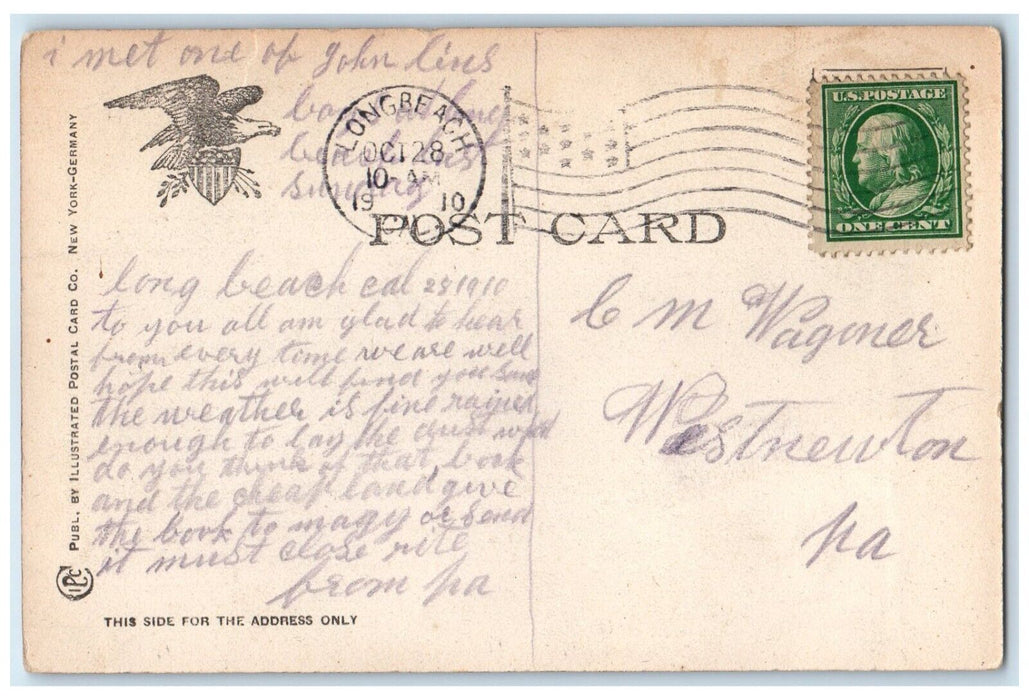 i met one of John Lins
boys at long
beach last
sunday
LONG BEACH
OCT 28
10 AM
1910
CAL
U.S. POSTAGE
ONE CENT
POST CARD
long beach cal 25 1910
to you all am glad to hear
from every time we are well
hope this will find you same
the weather is fine rained
enough to lay the dust wat
do you think of that book
and the cheap land give
the book to magy or send
it must close rite
from pa
C M Wagoner
Westnewton
pa
PUBL. BY ILLUSTRATED POSTAL CARD CO. NEW YORK-GERMANY
IPC
THIS SIDE FOR THE ADDRESS ONLY